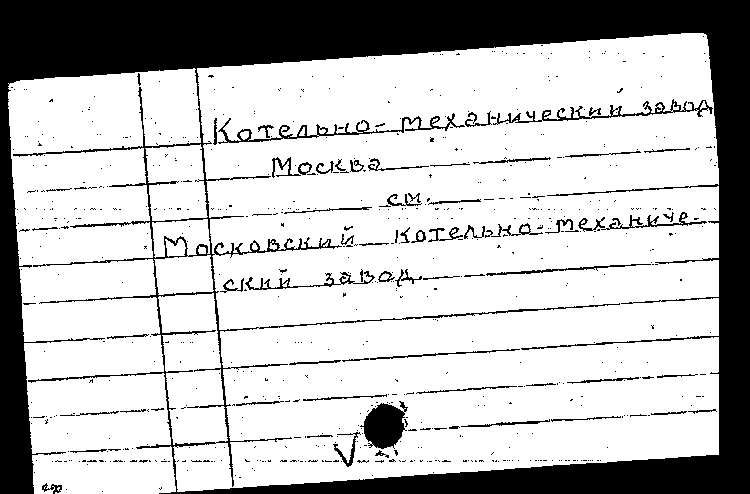 Котельно-механический завод
Москва
см.
Московский котельно-механиче-
ский завод.